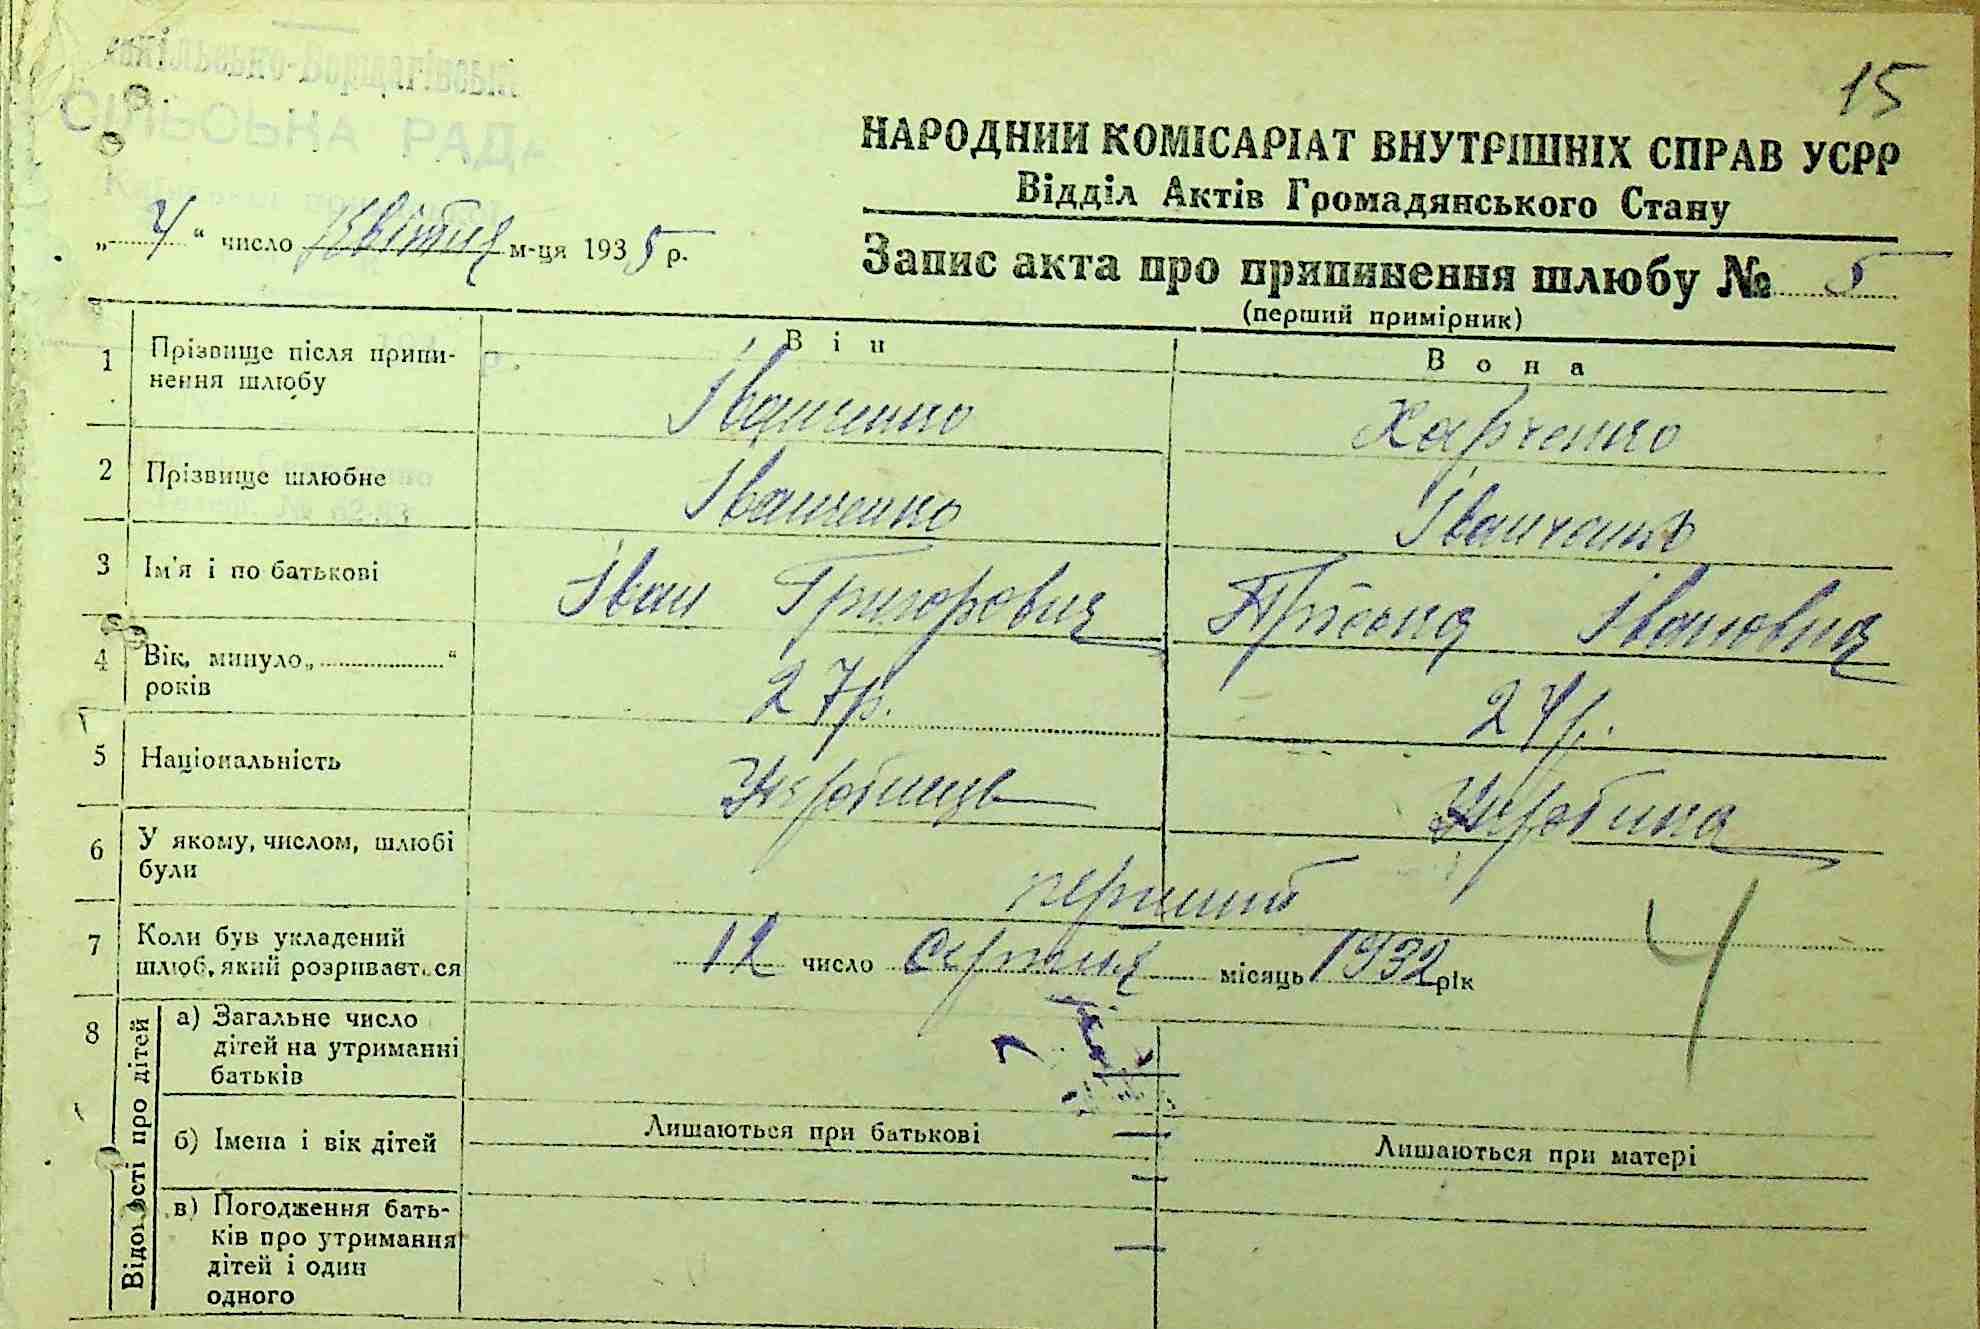 15
СІЛЬСЬКА РАДА
НАРОДНИЙ КОМІСАРІАТ ВНУТРІШНІХ СПРАВ УСРР
Відділ Актів Громадянського Стану
„4“ число Квітня м-ця 1935 р.
Запис акта про припинення шлюбу № 5
(перший примірник)
Він Вона
1 Прізвище після припи-
нення шлюбу
Іванченко Харченко
2 Прізвище шлюбне Іванченко Іванченко
3 Ім'я і по батькові Іван Григорович Івановна
4 Вік, минуло „ “
років
27р. 24р.
5 Національність Українець Українка
6 У якому, числом, шлюбі
були
перший
7 Коли був укладений
шлюб, який розривається
12 число Серпня місяць 1932 рік
4
8 Відомості про дітей
а) Загальне число
дітей на утриманні
батьків
б) Імена і вік дітей Лишаються при батькові Лишаються при матері
в) Погодження бать-
ків про утримання
дітей і один
одного